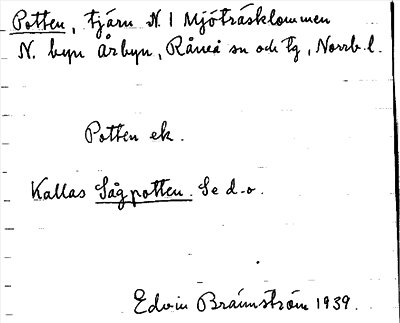 Potten, tjärn N. I Mjöträsklommen
N. byn Årbyn, Råneå sn och tg, Norrb. l.
Potten ek.
Kallas Sågpotten. Se d.o.
Edvin Brännström 1939.